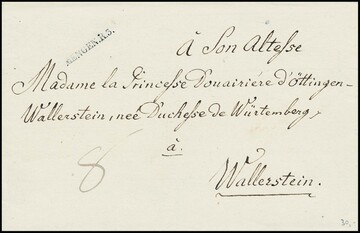 MENGEN.R.3.
à Son Altesse
Madame la Princesse Douairiére d'Öttingen-
Wallerstein, neé Duchesse de Würtemberg,
à
Wallerstein.
8
30,-